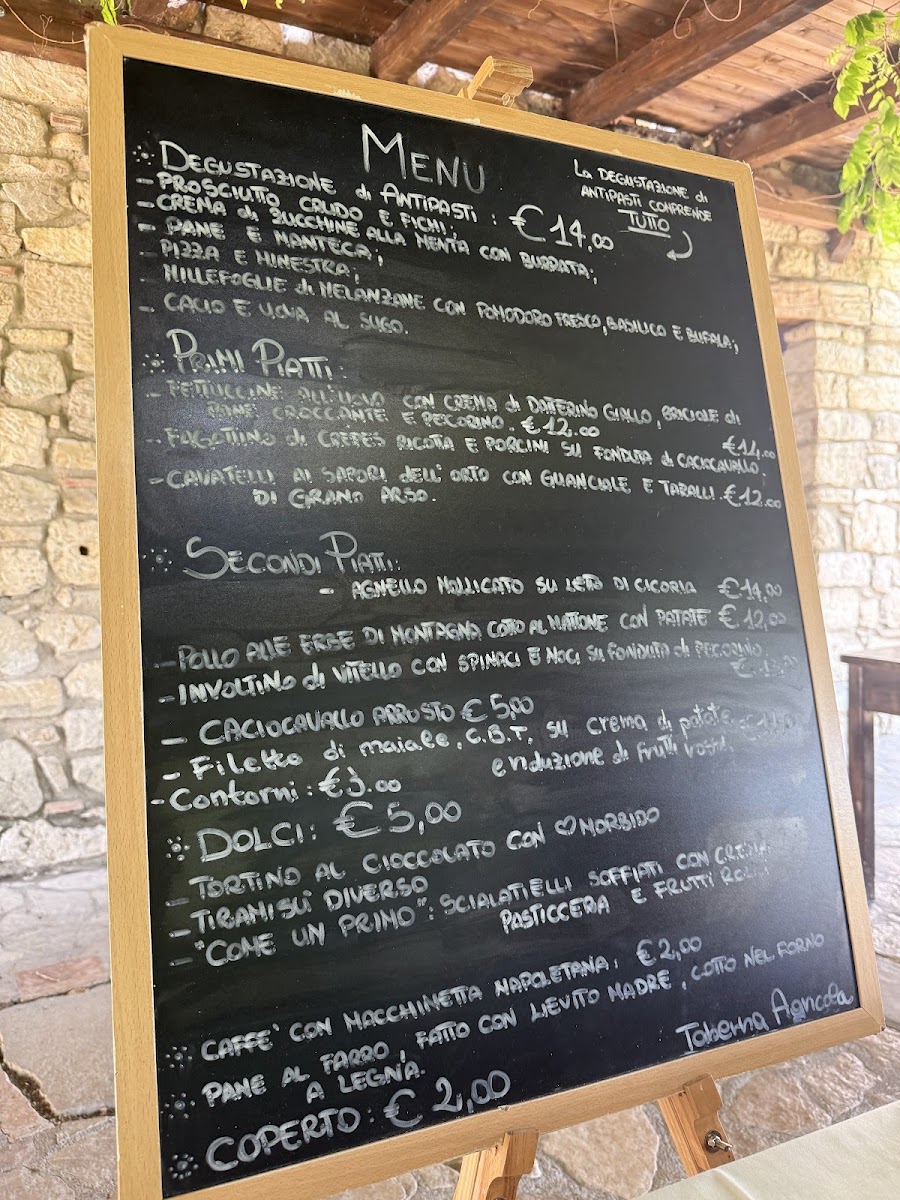 MENU
La DEGUSTAZIONE di
ANTIPASTI COMPRENDE
TUTTO
DEGUSTAZIONE di ANTIPASTI : €14,00
- PROSCIUTTO CRUDO E FICHI;
- CREMA di ZUCCHINE ALLA MENTA CON BURRATA;
- PANE E MANTECA;
- PIZZA E MINESTRA;
- MILLEFOGLIE di MELANZANE CON POMODORO FRESCO, BASILICO E BUFALA;
- CACIO E UOVA AL SUGO.
PRIMI PIATTI:
- FETTUCCINE ALL'UOVO CON CREMA di DATTERINO GIALLO, BRICIOLE di
PANE CROCCANTE E PECORINO. €12.00
- FAGOTTINO di CREPES RICOTA E PORCINI SU FONDUTA di CACIOCAVALLO. €14.00
- CAVATELLI AI SAPORI DELL'ORTO CON GUANCIALE E TARALLI €12.00
DI GRANO ARSO.
SECONDI PIATTI:
- AGNELLO MOLLICATO SU LETTO DI CICORIA €14,00
- POLLO ALLE ERBE DI MONTAGNA COTTO AL MATTONE CON PATATE €12,00
- INVOLTINO di VITELLO CON SPINACI E NOCI SU FONDUTA di PECORINO.
- CACIOCAVALLO ARROSTO €5,00
- Filetto di maiale, C.B.T. su crema di patate
e riduzione di frutti rossi.
- Contorni: €3.00
DOLCI: €5,00
- TORTINO AL CIOCCOLATO CON ♡ MORBIDO
- TIRAMISU' DIVERSO
- "COME UN PRIMO": SCIALATIELLI SOFFIATI CON CREMA
PASTICCERA E FRUTTI ROSSI
CAFFE' CON MACCHINETTA NAPOLETANA: €2,00
PANE AL FARRO, FATTO CON LIEVITO MADRE, COTTO NEL FORNO
A LEGNA.
Taberna Agricola
COPERTO: €2,00